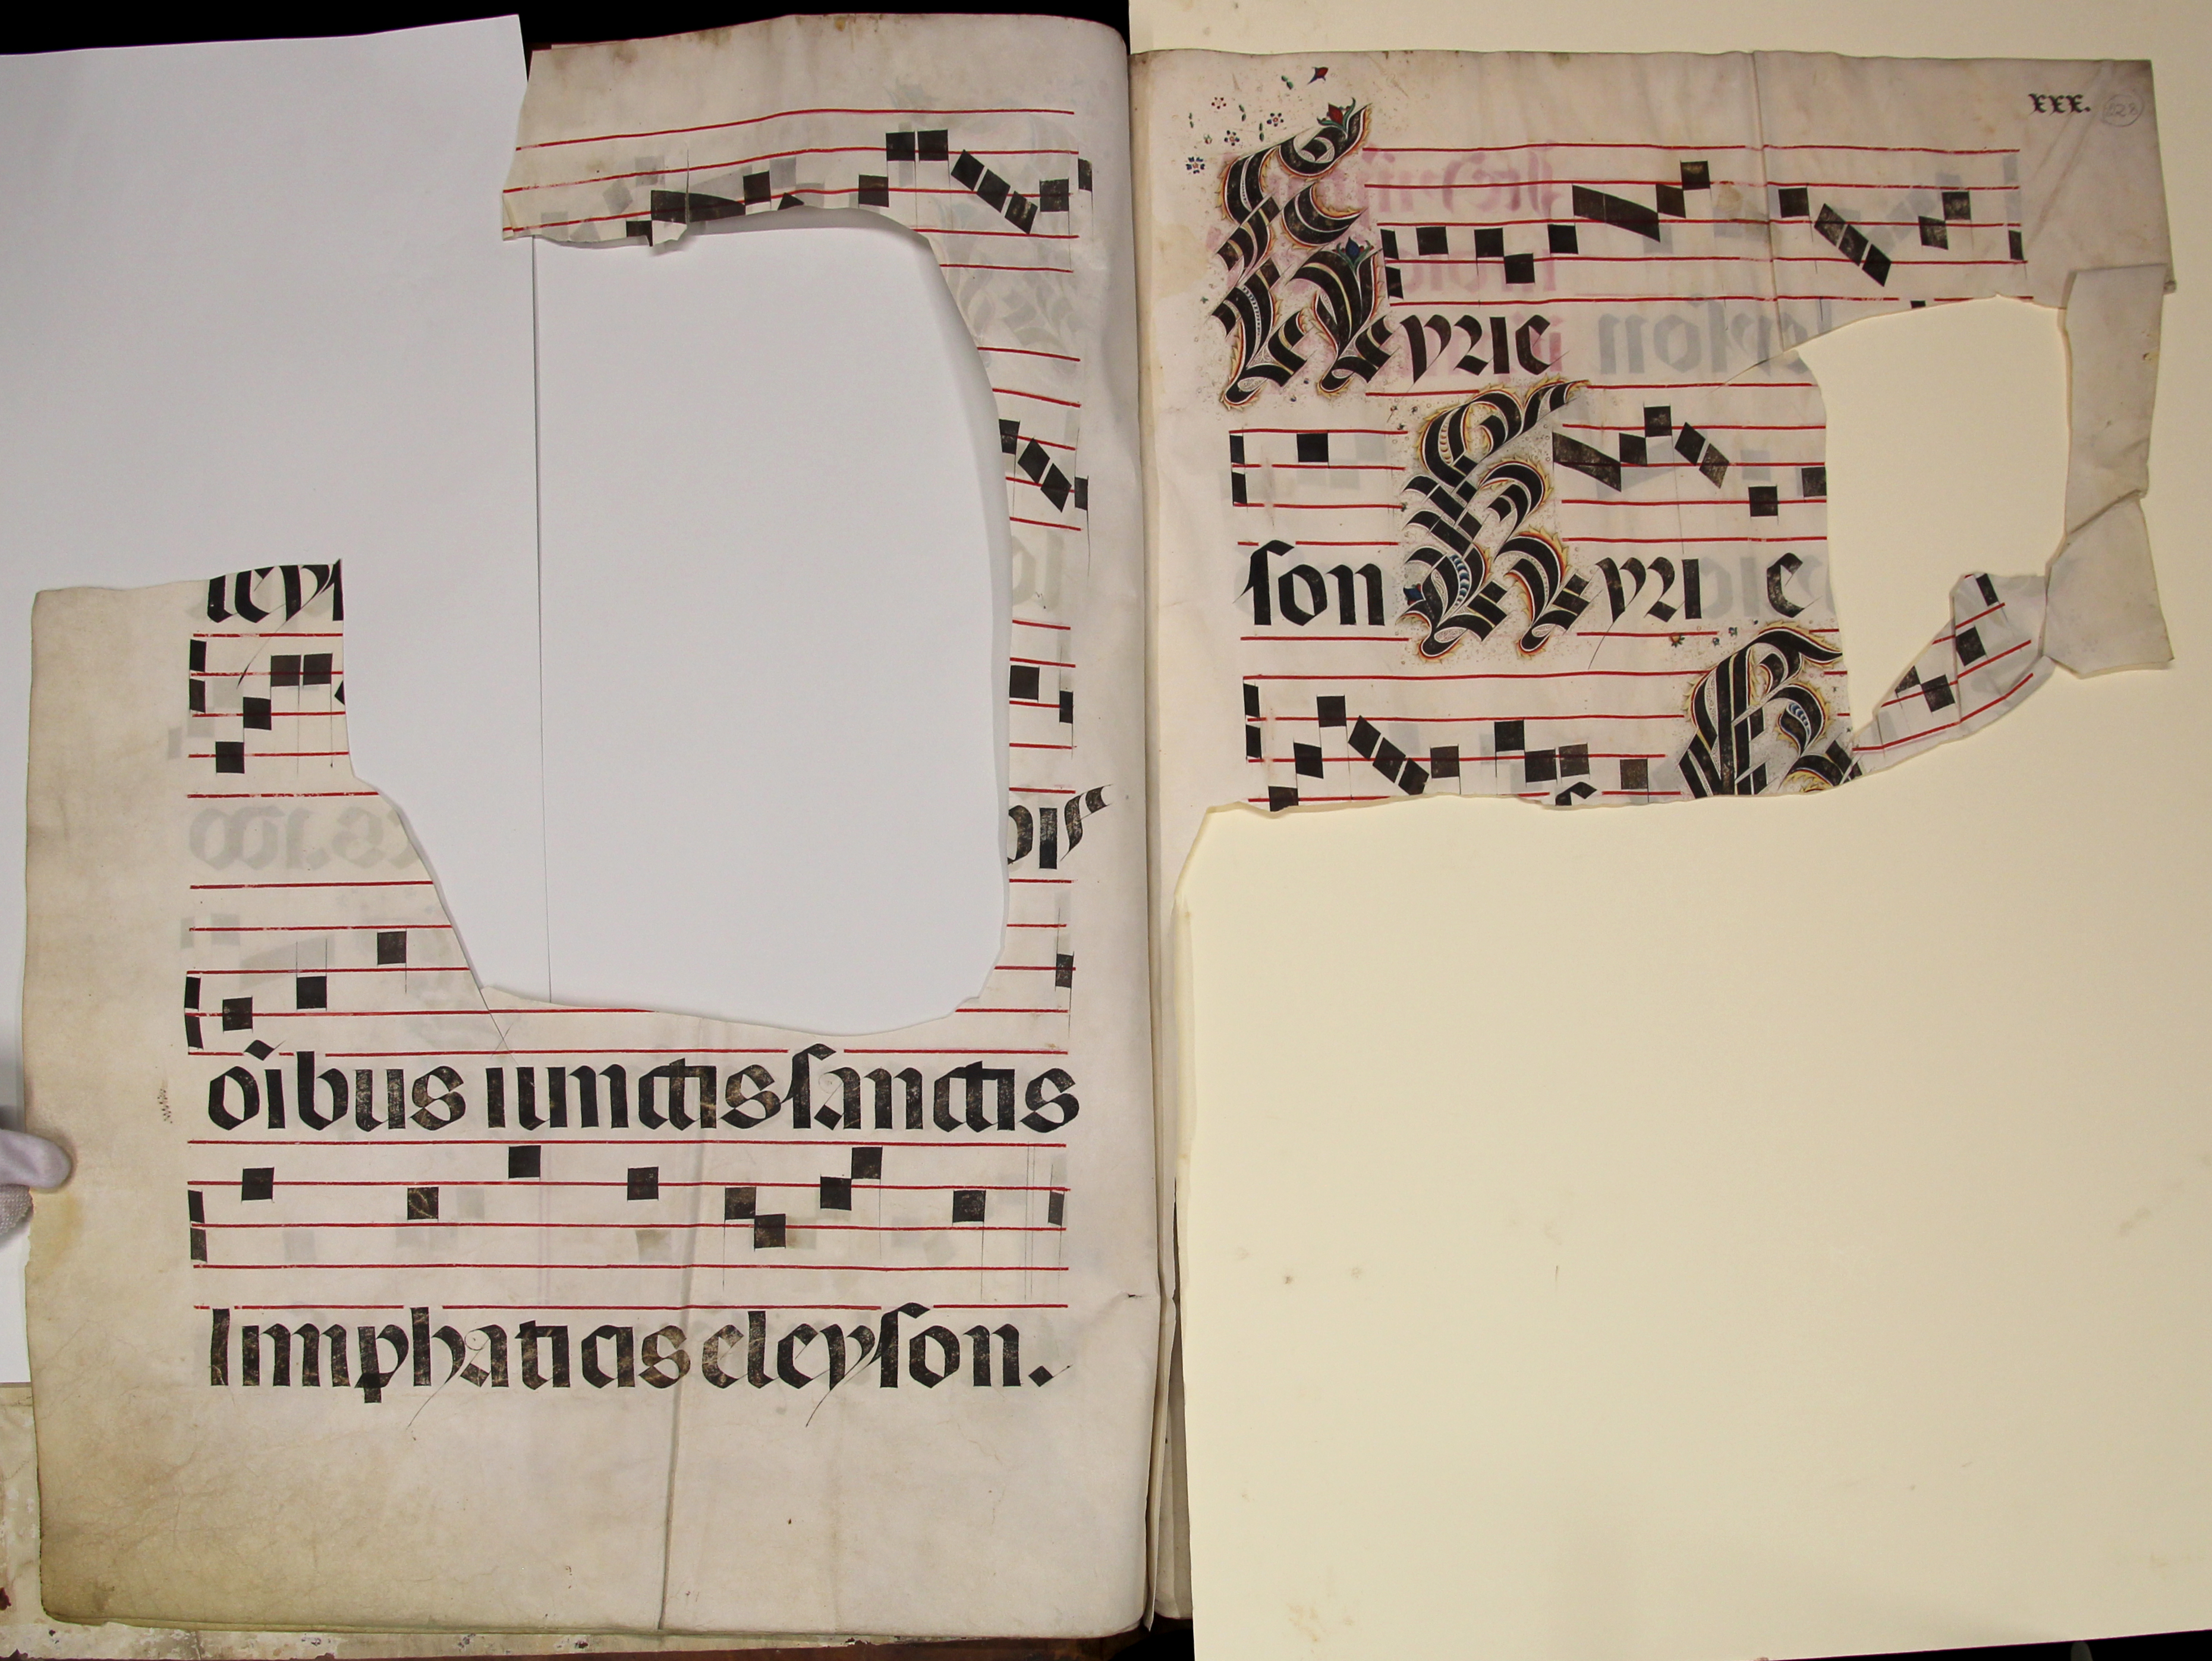 leyſ
oībus iunctis ſanctis
limphaticis eleyſon.
xxx.
Kyrie
ſon Kyrie